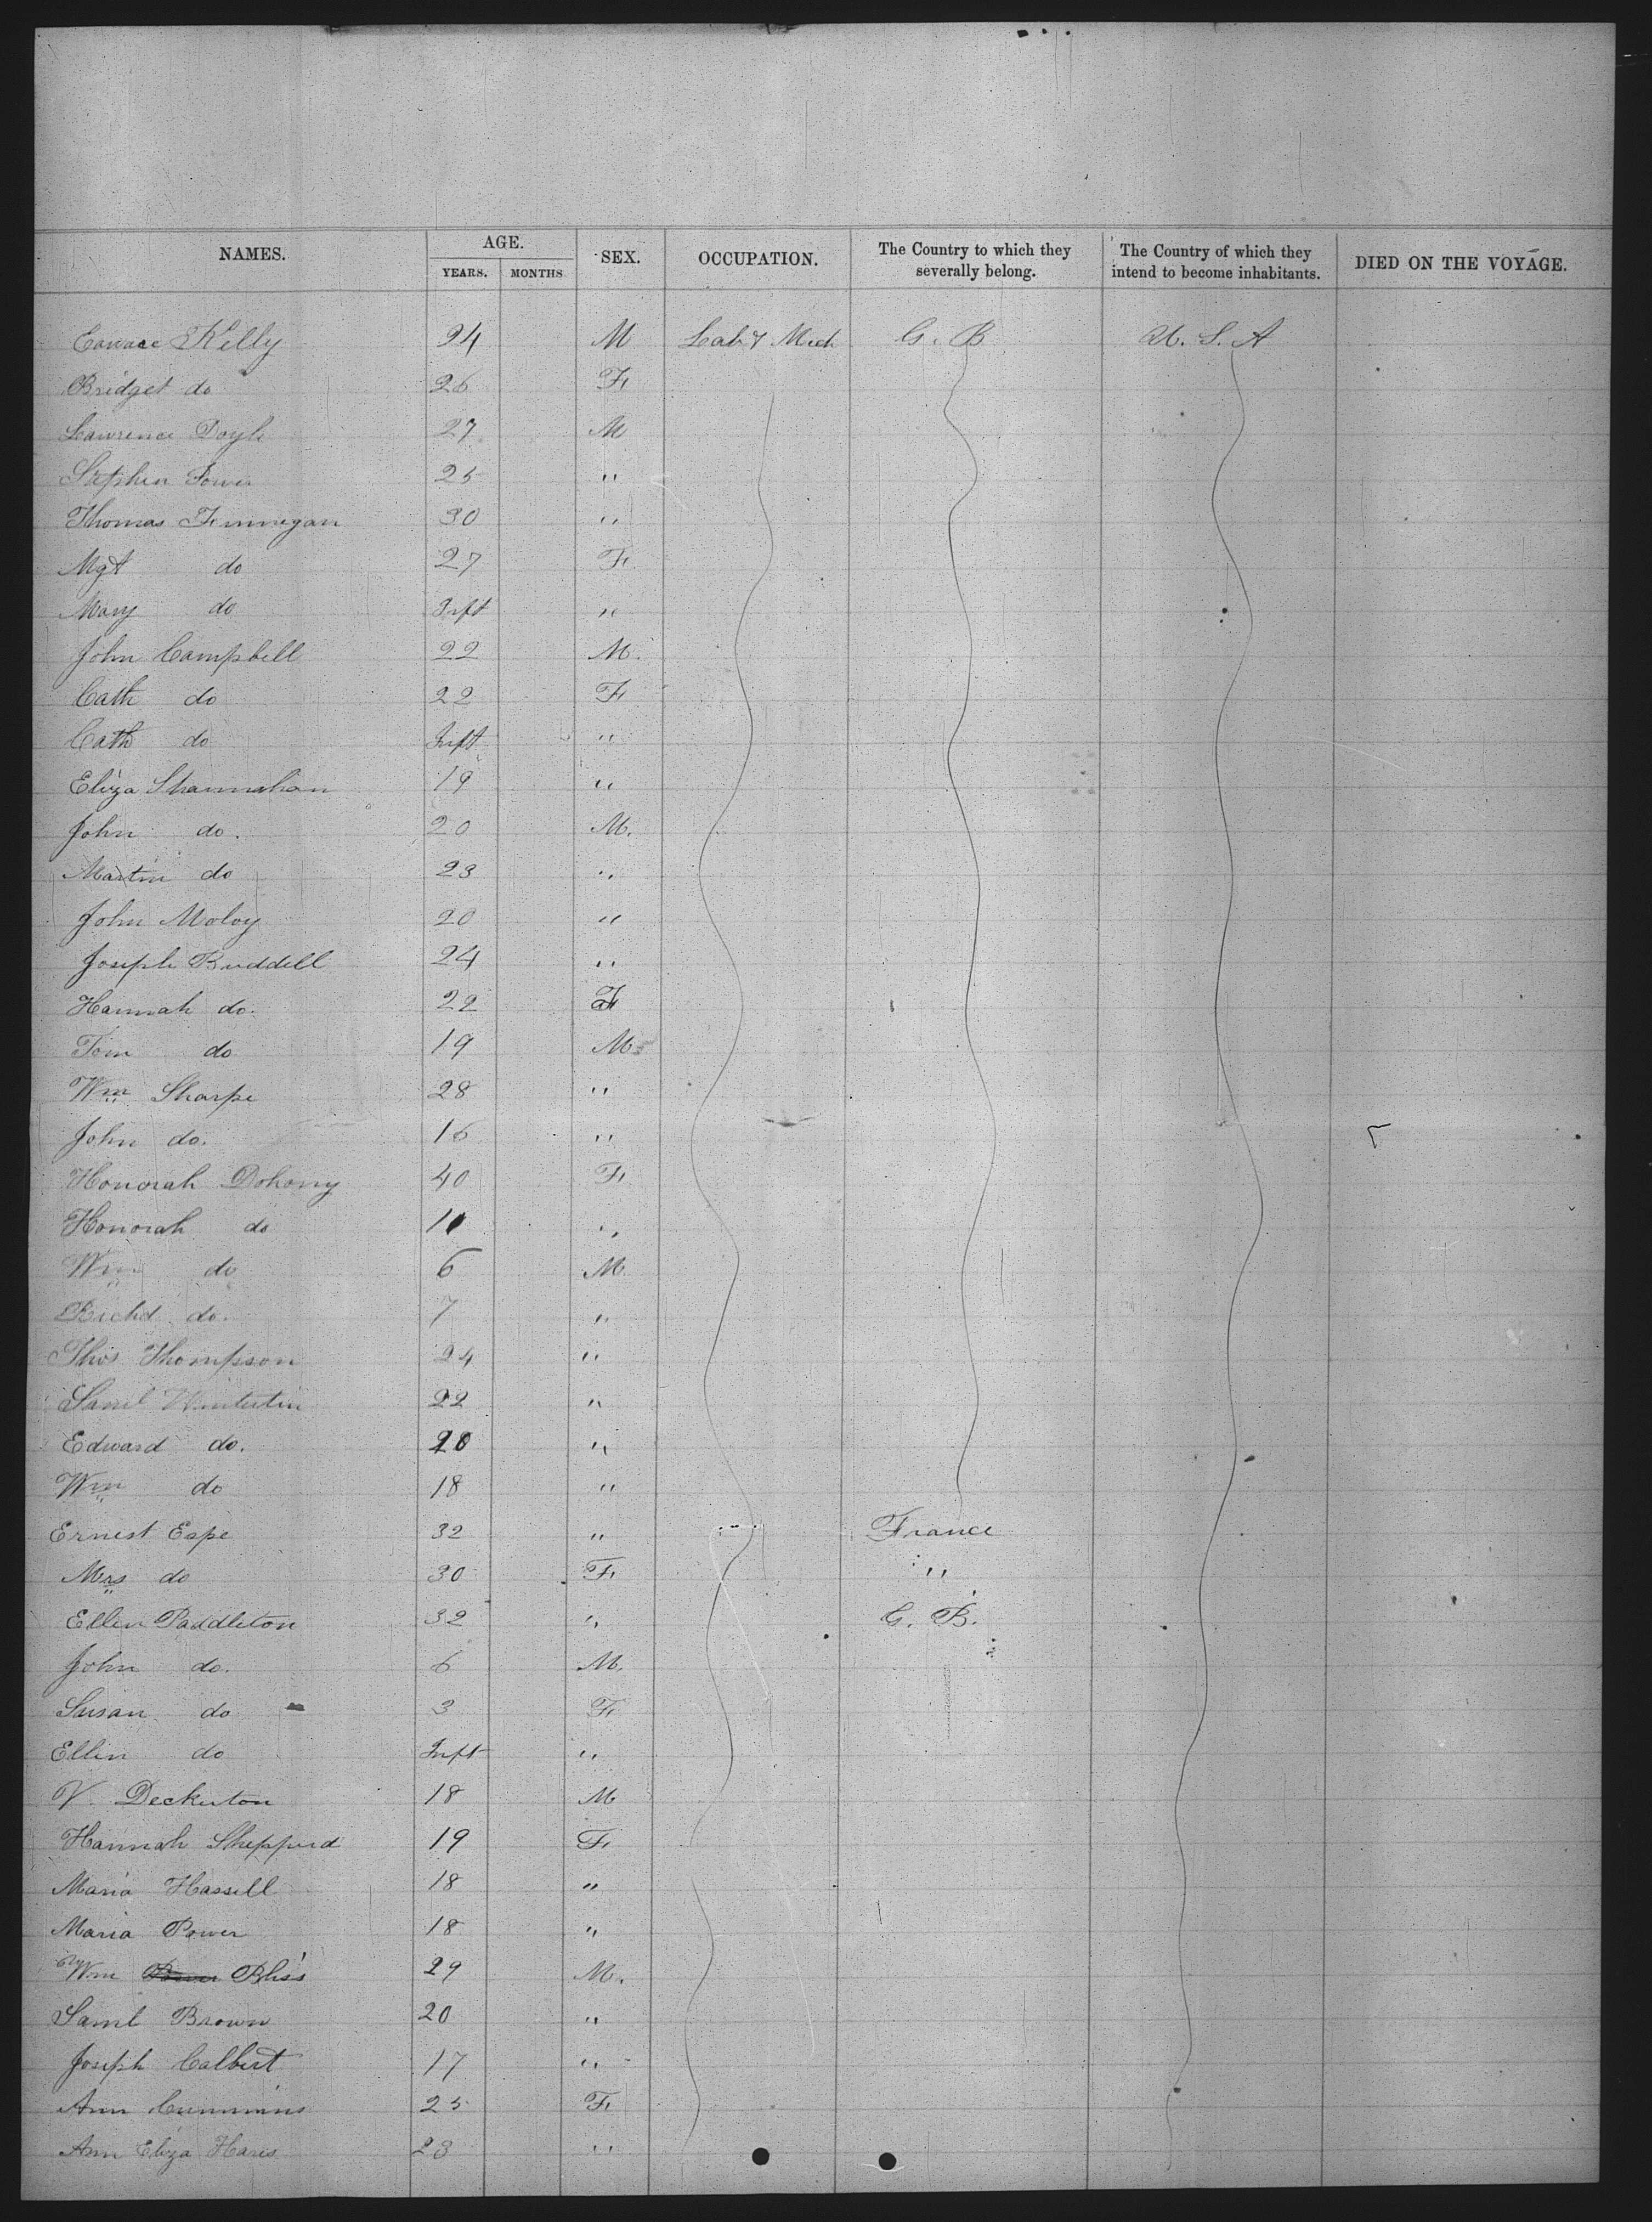 NAMES. AGE. YEARS. MONTHS SEX. OCCUPATION. The Country to which they severally belong. The Country of which they intend to become inhabitants. DIED ON THE VOYAGE.
Kelly 24 M Lab & Mech G. B U. S. A
Bridget do 26 F
Lawrence Doyle 27 M
Stephen Power 25 "
Thomas Finnegan 30 "
Mgt do 27 F
Mary do Inft "
John Campbell 22 M.
Cath do 22 F
Cath do Inft "
Eliza Shannahan 19 "
John do. 20 M.
Martin do 23 "
John Moloy 20 "
Joseph Ruddell 24 "
Hannah do. 22 F
Tom do 19 M
Wm Sharpe 28 "
John do. 16 "
Honorah Dohony 40 F
Honorah do 10 "
Wm do 6 M
Richd do. 7 "
Thos Thompson 24 "
Saml 22 "
Edward do. 20 "
Wm do 18 "
Ernest Espe 32 " France
Mrs do 30 F "
Ellen Paddleton 32 " G. B.
John do. 6 M.
Susan do 3 F
Ellen do Inft "
V. Deckerton 18 M
Hannah Shepperd 19 F
Maria Hassell 18 "
Maria Power 18 "
Wm Bliss 29 M.
Saml Brown 20 "
Joseph Calbert 17 "
Ann Cummins 25 F
Ann Eliza Haris 23 "